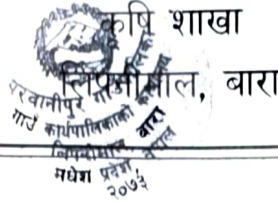 कृषि शाखा
लिपनीमाल, बारा
परवानीपुर गाउँपालिका
गाउँ कार्यपालिकाको कार्यालय
लिपनीमाल, बारा
मधेश प्रदेश, नेपाल
२०७३